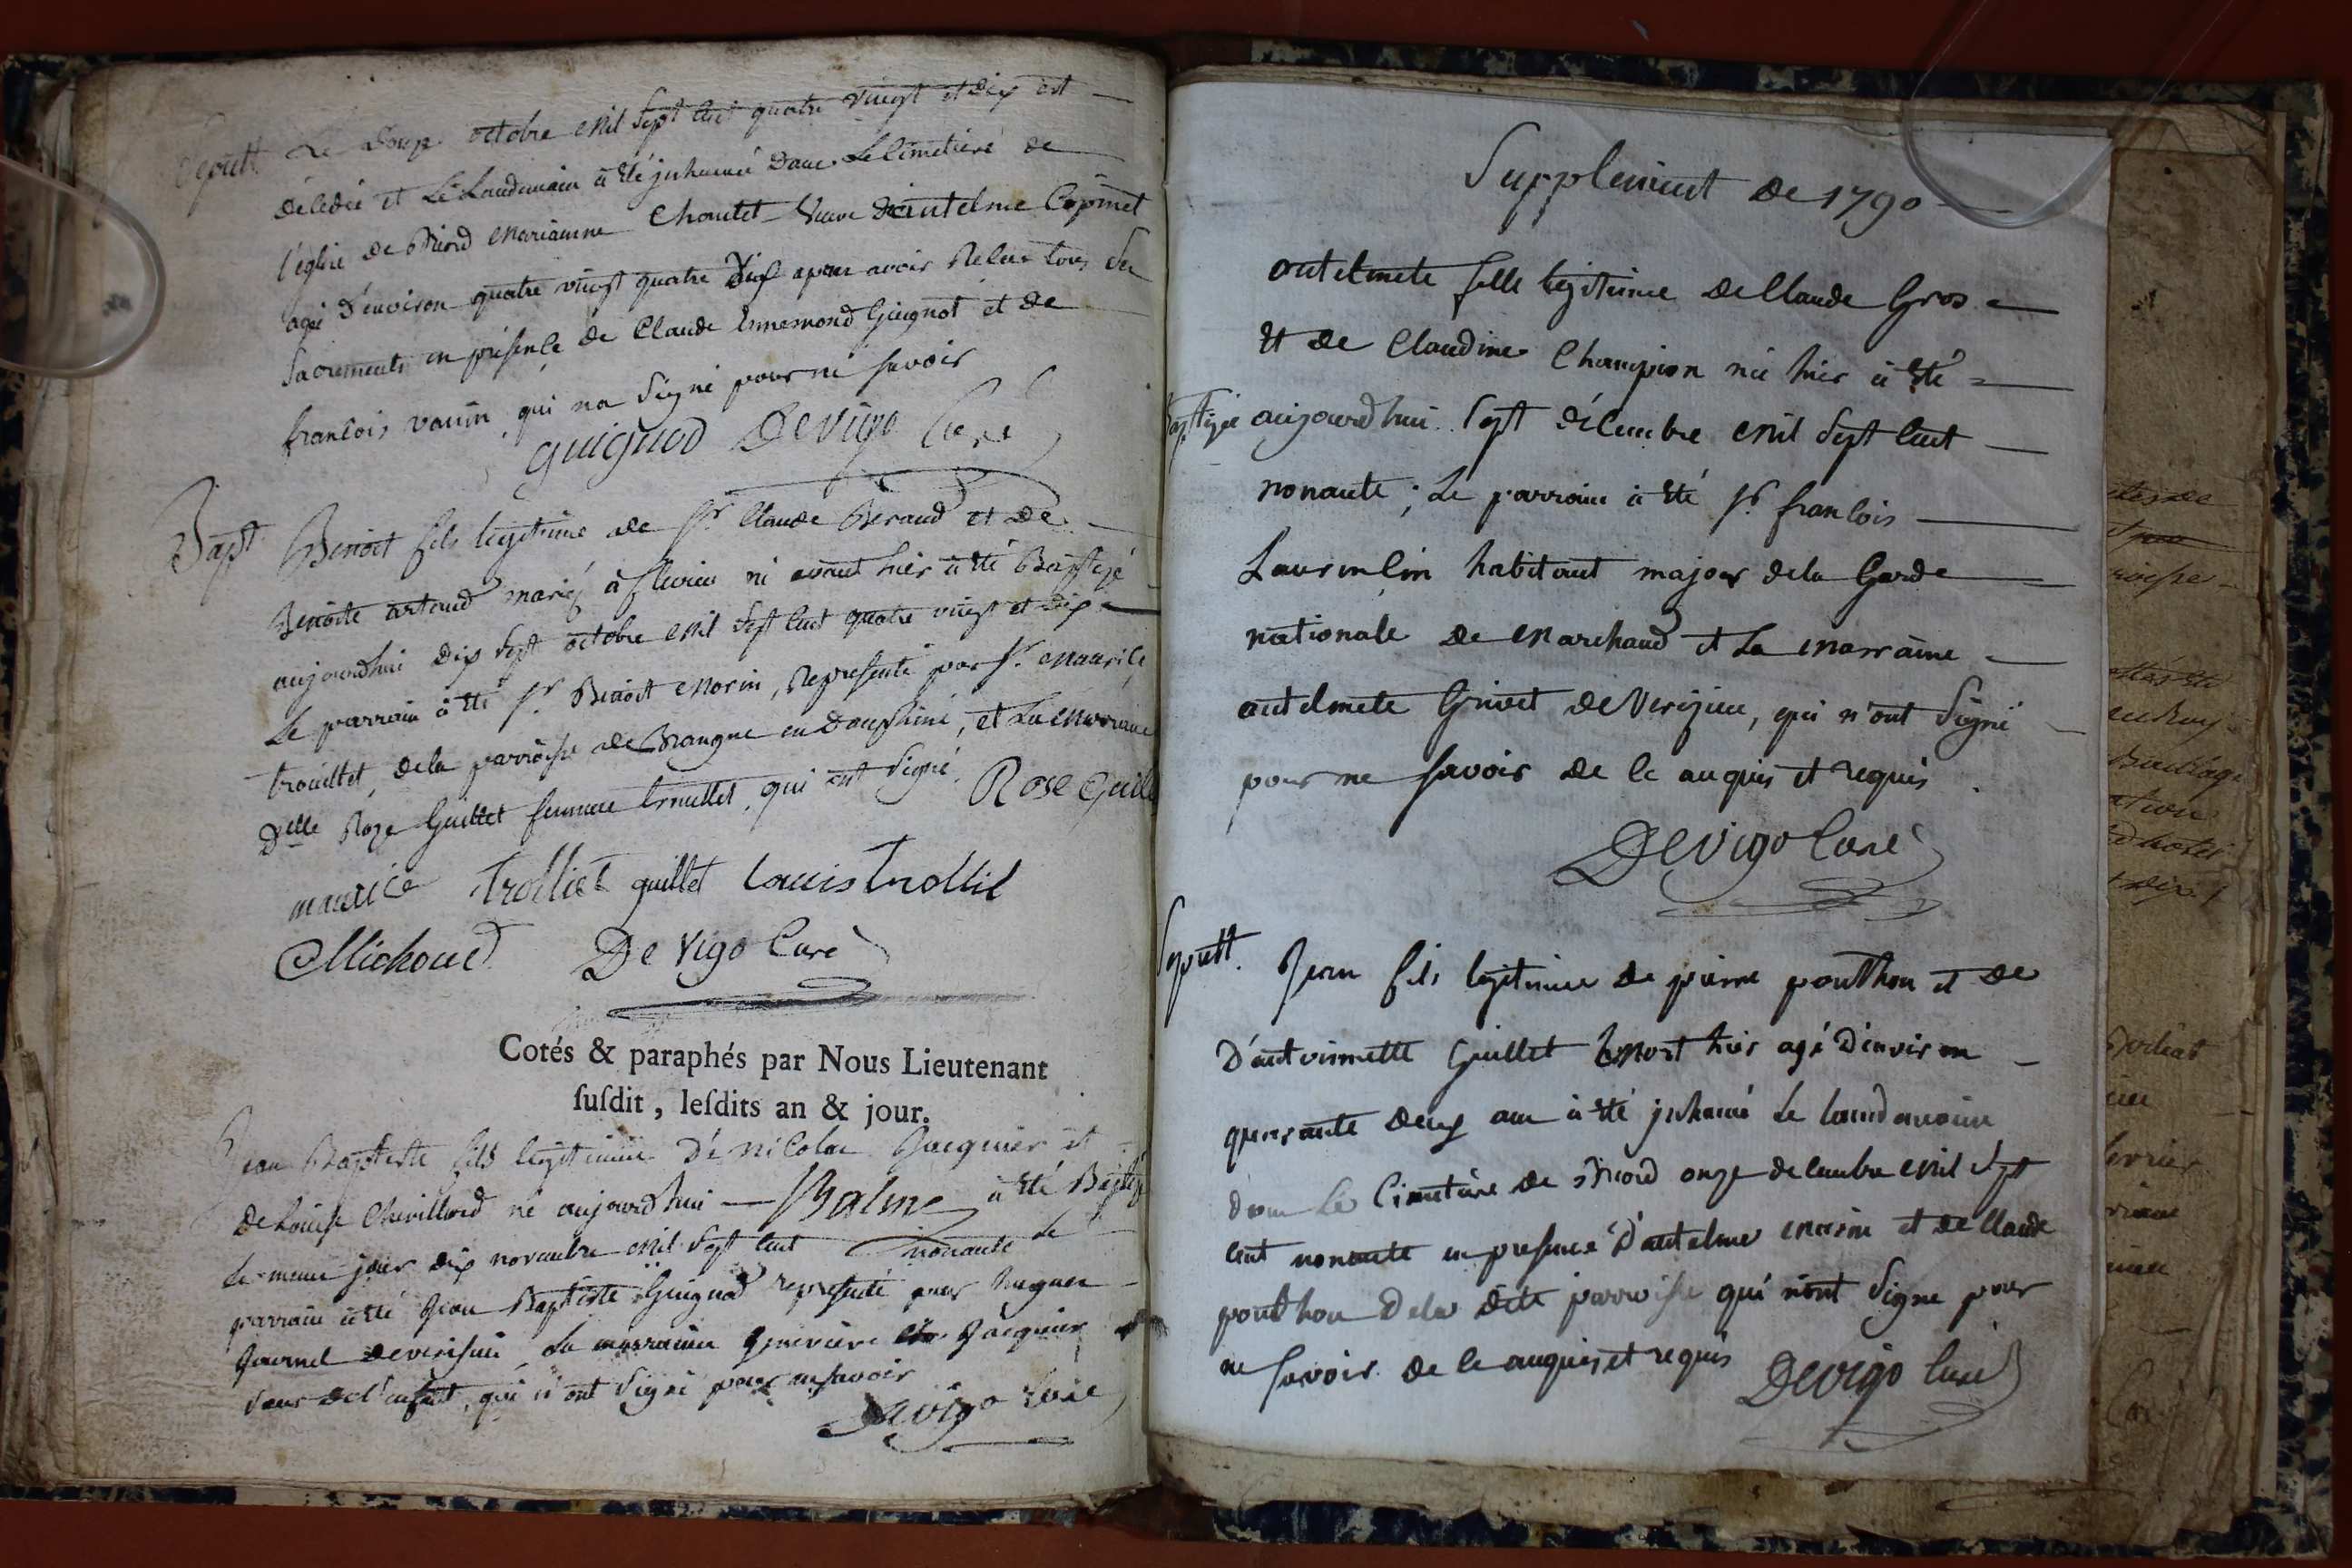 Sepult. Le Douze octobre mil sept cent quatre vingt et dix est
décédée et Le Landemain a été inhumé dans Le Cimetiere de
l'église de Briord mariamne Choutet veuve d'antelme Copinet
agé d'environ quatre vingt quatre dix apres avoir Relue tous ses
Sacrements en présence de Claude Ennemond Guignot et de
francois vasin qui n'a signé pour ne savoir
guignod Devigo Curé
Bapt. Benoît fils legitime de Sr. Claude Beraud et de
Benoite artaud mariés à fleurieu né avant hier a été Baptizé
aujourdhui dix sept octobre mil sept cent quatre vingt et dix
Le parrain a été Sr. Benoît morin, Representé par Sr. maurice
trouillet, de la parroisse de Brangue en Dauphiné, et La marraine
Delle Roze Guillet femme trouillet, qui ont signé. Rose Guille
maurice Trolliet guillet Louis trolliet
Michoud De vigo Curé
Cotés & paraphés par Nous Lieutenant
susdit, lesdits an & jour.
Jean Baptiste fils legitime dé nicolas Jacquier et
de Louise Chevillard né aujourdhui Balme a été Baptizé
Le meme jour dix novembre mil sept cent nonante Le
parrain a été Jean Baptiste Guignod representé par hugues
Journel de verisieu, La marraine Genevieve Jacquier
seur de l'enfant, qui n'ont signé pour ne savoir
Devigo Curé
Supplement de 1790
antelmete fille legitime de Claude Gros
Et de Claudine Champion née hier a été
Baptizée aujourdhui sept décembre mil sept cent
nonante; Le parrain a été Sr. francois
Laurencin habitant major de la Garde
nationale de marchand et La marraine
antelmete Grivet de Verizieu, qui n'ont signé
pour ne savoir de ce anquis et requis
De vigo Curé
Sepult. Jean fils legitime de pierre pontthon et de
D'antoinnette Guillet mort hier agé D'environ
quarante deux ans a été inhumé Le landemain
dans Le Cimetiere de Briord onze decembre mil sept
cent nonante en presence d'antelme marin et de Claude
ponthon De la dite parroisse qui n'ont signe pour
ne savoir de ce anquis et requis Devigo Curé